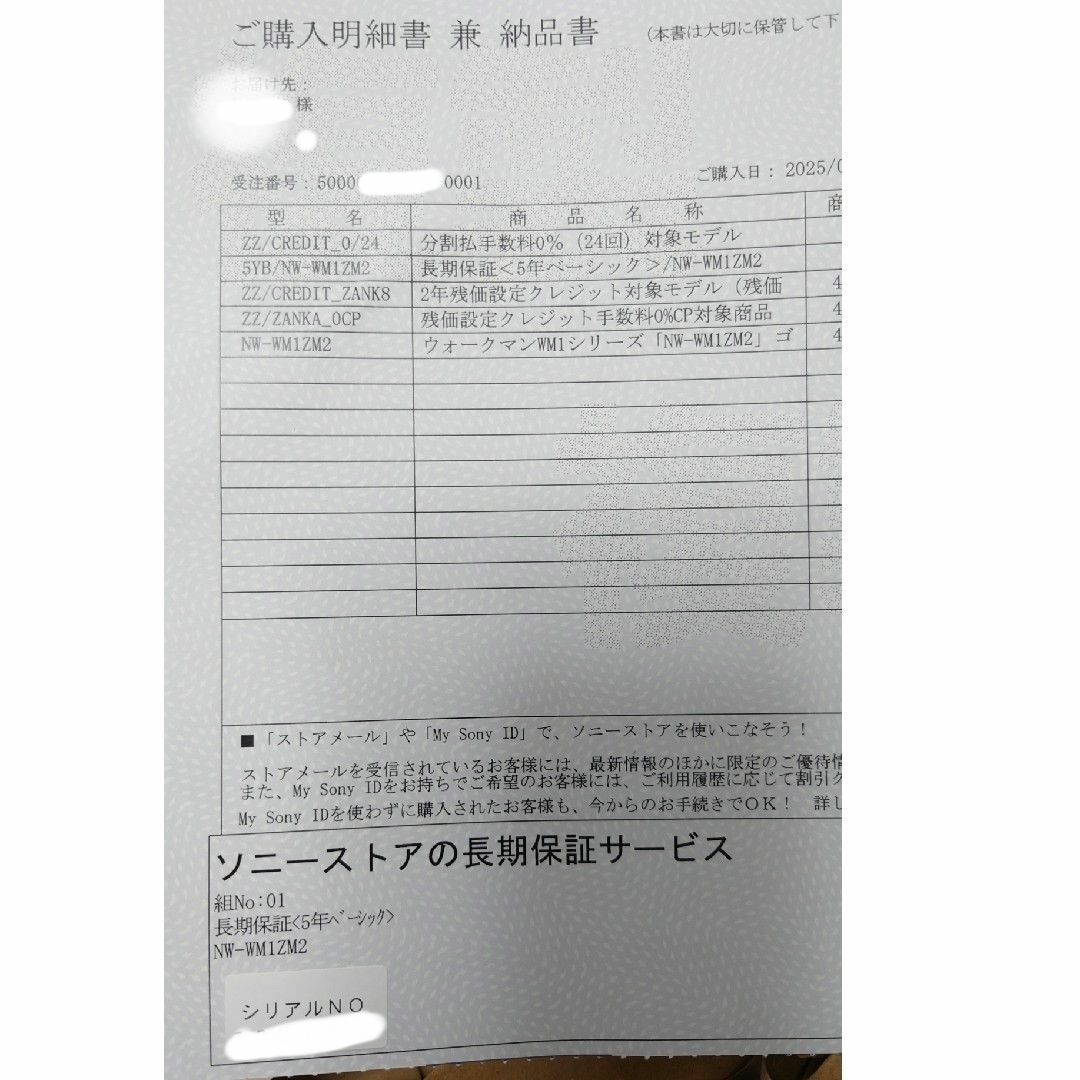 ご購入明細書 兼 納品書
(本書は大切に保管して下
お届け先：
様
受注番号：5000 0001
ご購入日： 2025/0
型 名 商 品 名 称 商
ZZ/CREDIT_0/24 分割払手数料0%（24回）対象モデル
5YB/NW-WM1ZM2 長期保証＜5年ベーシック＞/NW-WM1ZM2
ZZ/CREDIT_ZANK8 2年残価設定クレジット対象モデル（残価 4
ZZ/ZANKA_0CP 残価設定クレジット手数料0%CP対象商品 4
NW-WM1ZM2 ウォークマンWM1シリーズ「NW-WM1ZM2」ゴ 4
■「ストアメール」や「My Sony ID」で、ソニーストアを使いこなそう！
ストアメールを受信されているお客様には、最新情報のほかに限定のご優待情
また、My Sony IDをお持ちでご希望のお客様には、ご利用履歴に応じて割引ク
My Sony IDを使わずに購入されたお客様も、今からのお手続きでOK！ 詳し
ソニーストアの長期保証サービス
組No:01
長期保証<5年ﾍﾞｰｼｯｸ>
NW-WM1ZM2
シリアルNO